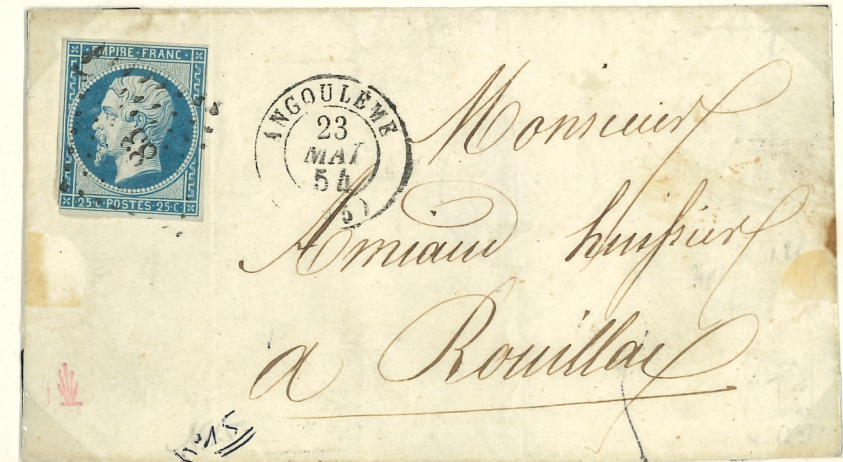 EMPIRE · FRANC ·
25 · C · POSTES · 25 · C ·
ANGOULÊME
23
MAI
54
Monsieur
Amiaud huissier
a Rouillac